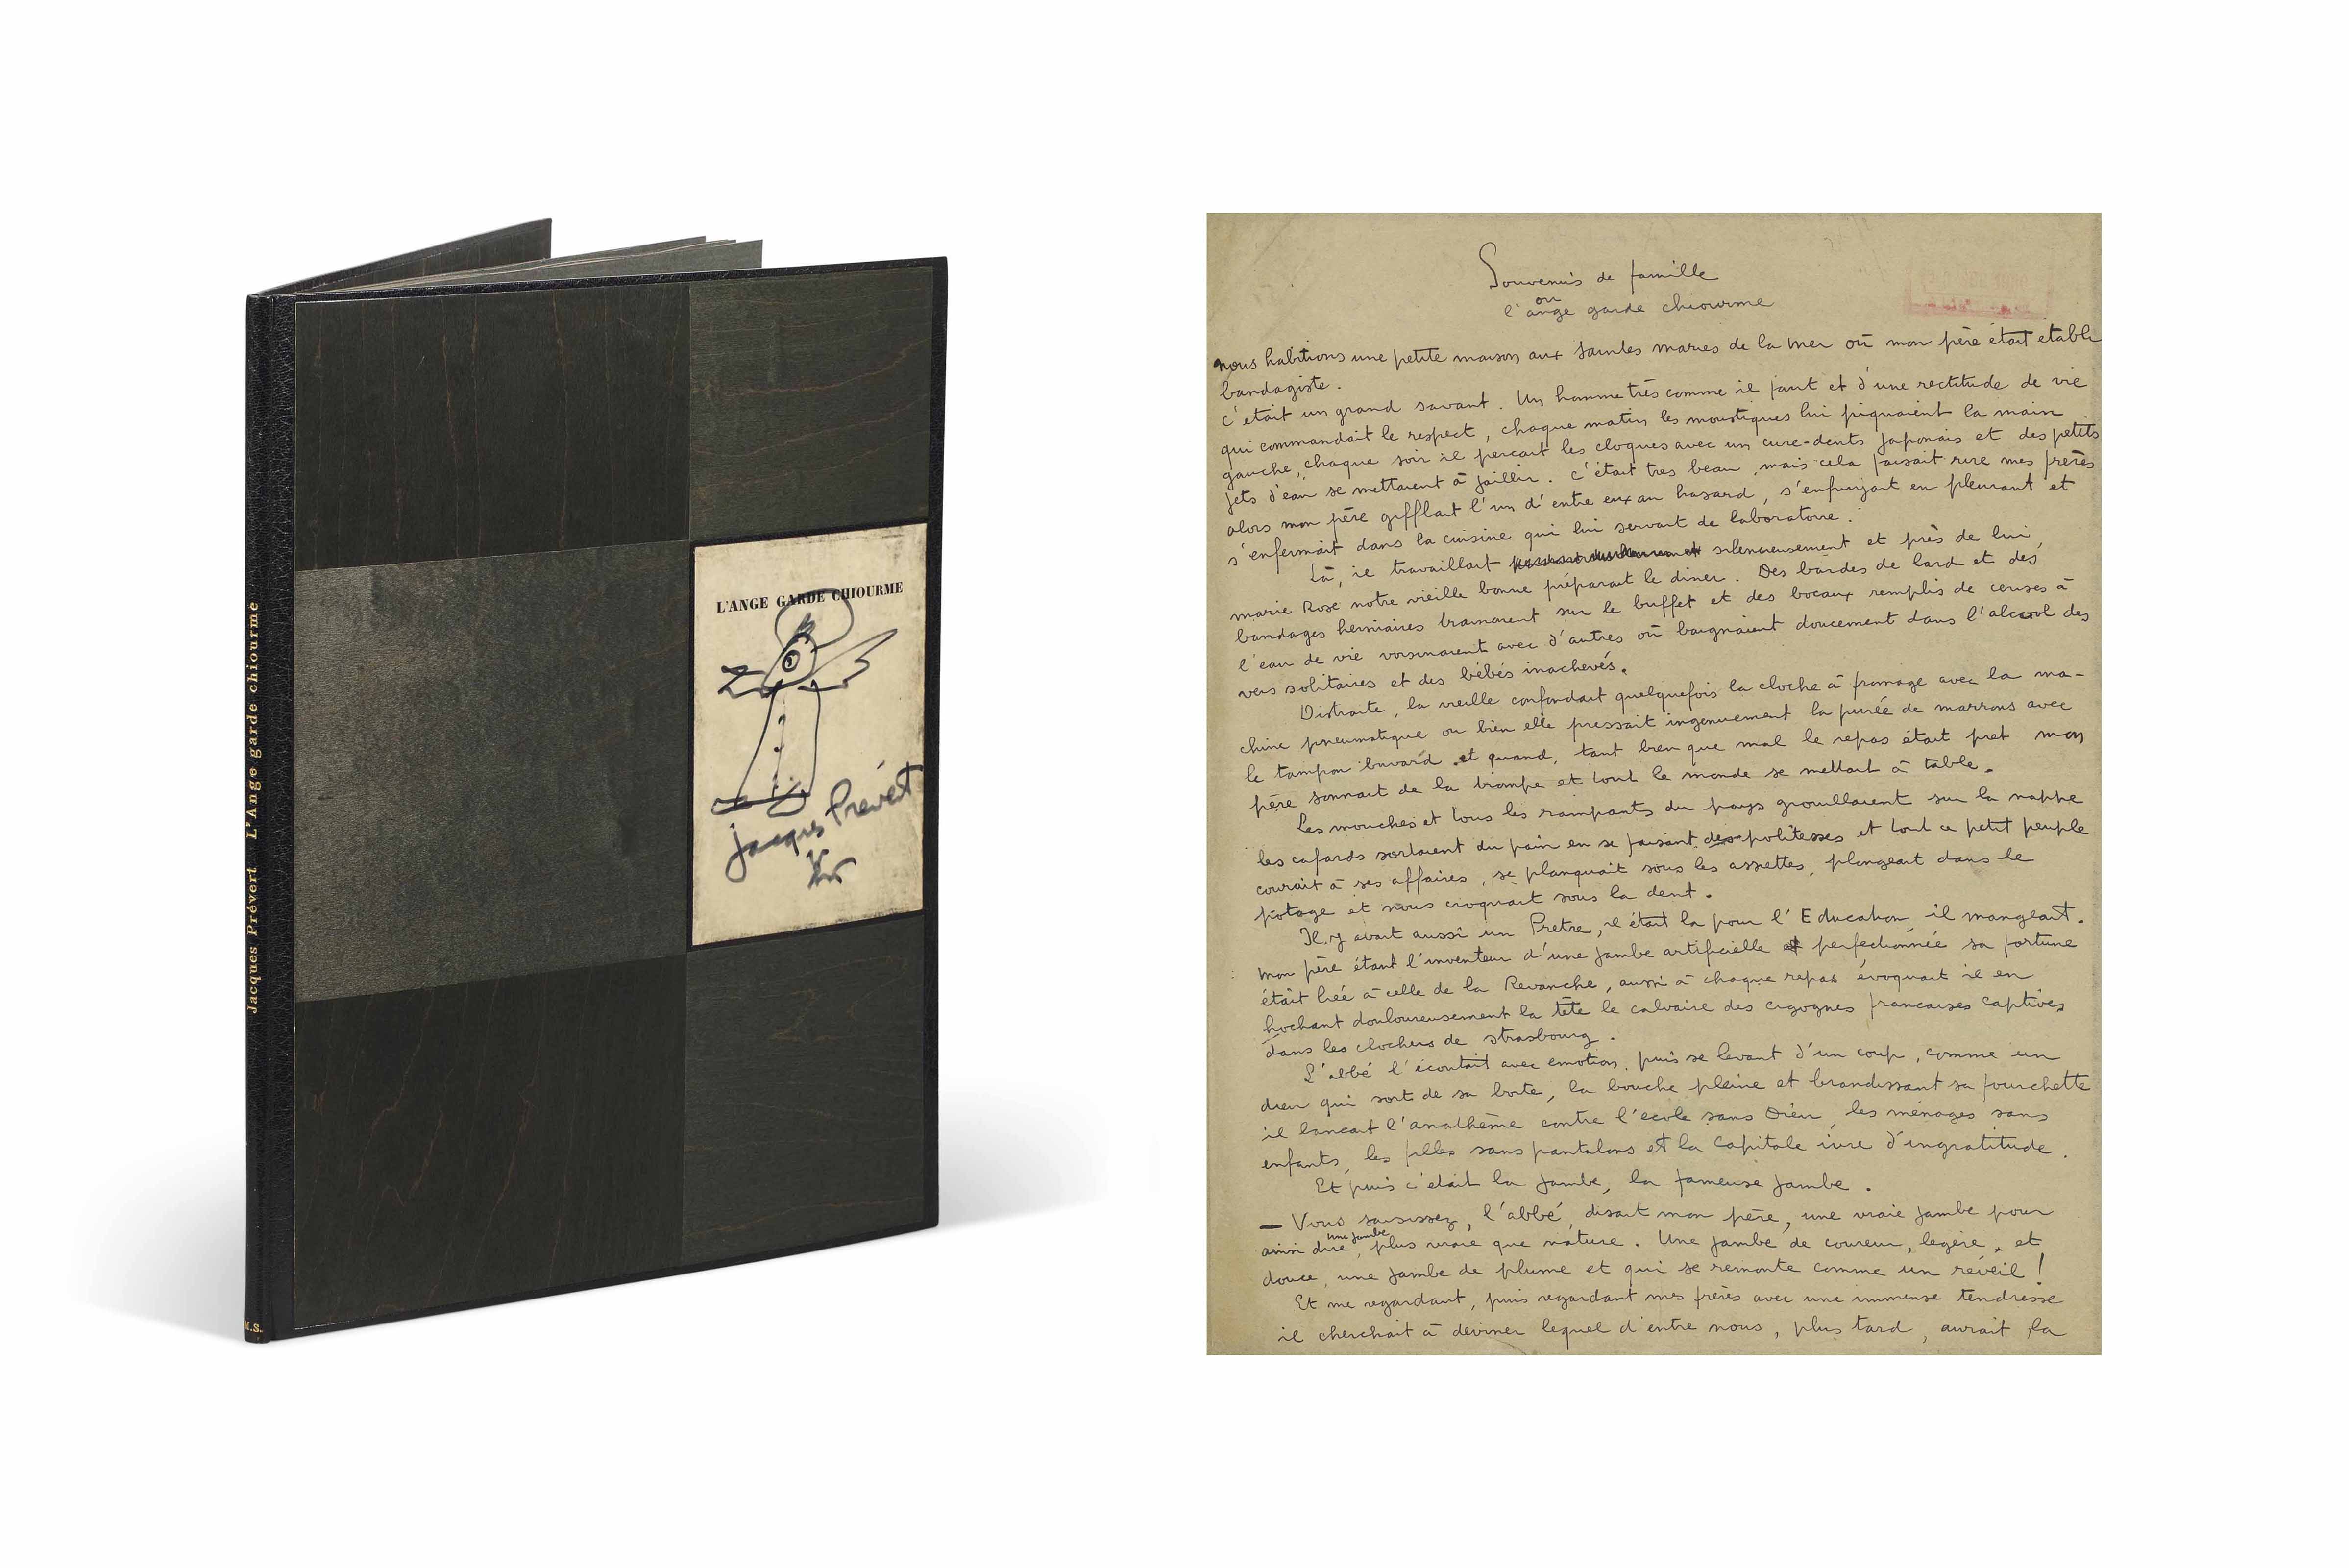 Jacques Prévert L'Ange garde chiourme
M.S.
L'ANGE GARDE CHIOURME
Jacques Prévert
Souvenirs de famille
ou
l'ange garde chiourme
nous habitions une petite maison aux saintes maries de la mer où mon père était établi
bandagiste.
c'était un grand savant. Un homme très comme il faut et d'une rectitude de vie
qui commandait le respect, chaque matin les moustiques lui piquaient la main
gauche, chaque soir il perçait les cloques avec un cure-dents japonais et des petits
jets d'eau se mettaient à jaillir. C'était tres beau, mais cela faisait rire mes frères
alors mon père gifflait l'un d'entre eux au hasard, s'enfuyait en pleurant et
s'enfermait dans la cuisine qui lui servait de laboratoire.
Là, il travaillait silencieusement et près de lui,
marie Rose notre vieille bonne préparait le diner. Des bardes de lard et des
bandages herniaires trainaient sur le buffet et des bocaux remplis de cerises à
l'eau de vie voisinaient avec d'autres où baignaient doucement dans l'alcool des
vers solitaires et des bébés inachevés.
Distraite, la vieille confondait quelquefois la cloche à fromage avec la ma-
chine pneumatique ou bien elle pressait ingenuement la purée de marrons avec
le tampon buvard et quand, tant bien que mal le repas était pret mon
père sonnait de la trompe et tout le monde se mettait à table.
Les mouches et tous les rampants du pays grouillaient sur la nappe
les cafards sortaient du pain en se faisant des politesses et tout ce petit peuple
courait à ses affaires, se planquait sous les assiettes, plongeait dans le
potage et nous croquait sous la dent.
Il y avait aussi un Pretre, il était la pour l'Education, il mangeait.
mon père étant l'inventeur d'une jambe artificielle perfectionnée sa fortune
était liée à celle de la Revanche, aussi à chaque repas évoquait il en
hochant douloureusement la tête le calvaire des cigognes francaises captives
dans les clochers de strasbourg.
L'abbé l'écoutait avec emotion, puis se levant d'un coup, comme un
dieu qui sort de sa boite, la bouche pleine et brandissant sa fourchette
il lancait l'anathème contre l'ecole sans Dieu, les ménages sans
enfants, les filles sans pantalons et la Capitale ivre d'ingratitude.
Et puis c'etait la jambe, la fameuse jambe.
— Vous saisissez, l'abbé, disait mon père, une vraie jambe pour
une jambe
ainsi dire, plus vraie que nature. Une jambe de coureur, legère, et
douce, une jambe de plume et qui se remonte comme un reveil!
Et me regardant, puis regardant mes frères avec une immense tendresse
il cherchait à deviner lequel d'entre nous, plus tard, aurait la